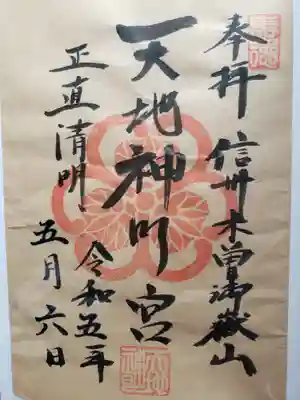 奉拝
信州木曽御嶽山
天地神明宮
正直清明
令和五年
五月六日